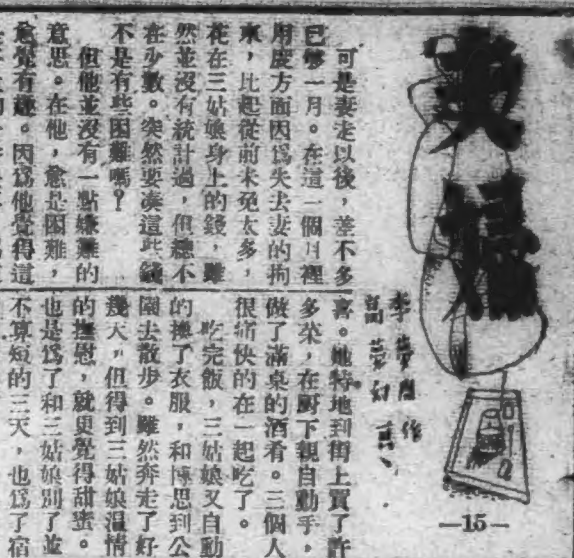 李夢周 作
—15—
可是妻走以後,差不多
已夠一月。在這一個月裡
用度方面因爲失去妻的拘
束,比起從前未免太多,
花在三姑娘身上的錢,雖
然並沒有統計過,但總不
在少數。突然要湊這些錢
不是有些困難嗎?
但他並沒有一點嫌難的
意思。在他,愈是困難,
愈覺有趣。因爲他覺得這
喜。她特地到街上買了許
多菜,在厨下親自動手,
做了滿桌的酒肴。三個人
很痛快的在一起吃了。
吃完飯,三姑娘又自動
的換了衣服,和博思到公
園去散步。雖然奔走了好
幾天,但得到三姑娘溫情
的撫慰,就更覺得甜蜜。
也是爲了和三姑娘別了並
不算短的三天,也爲了宿